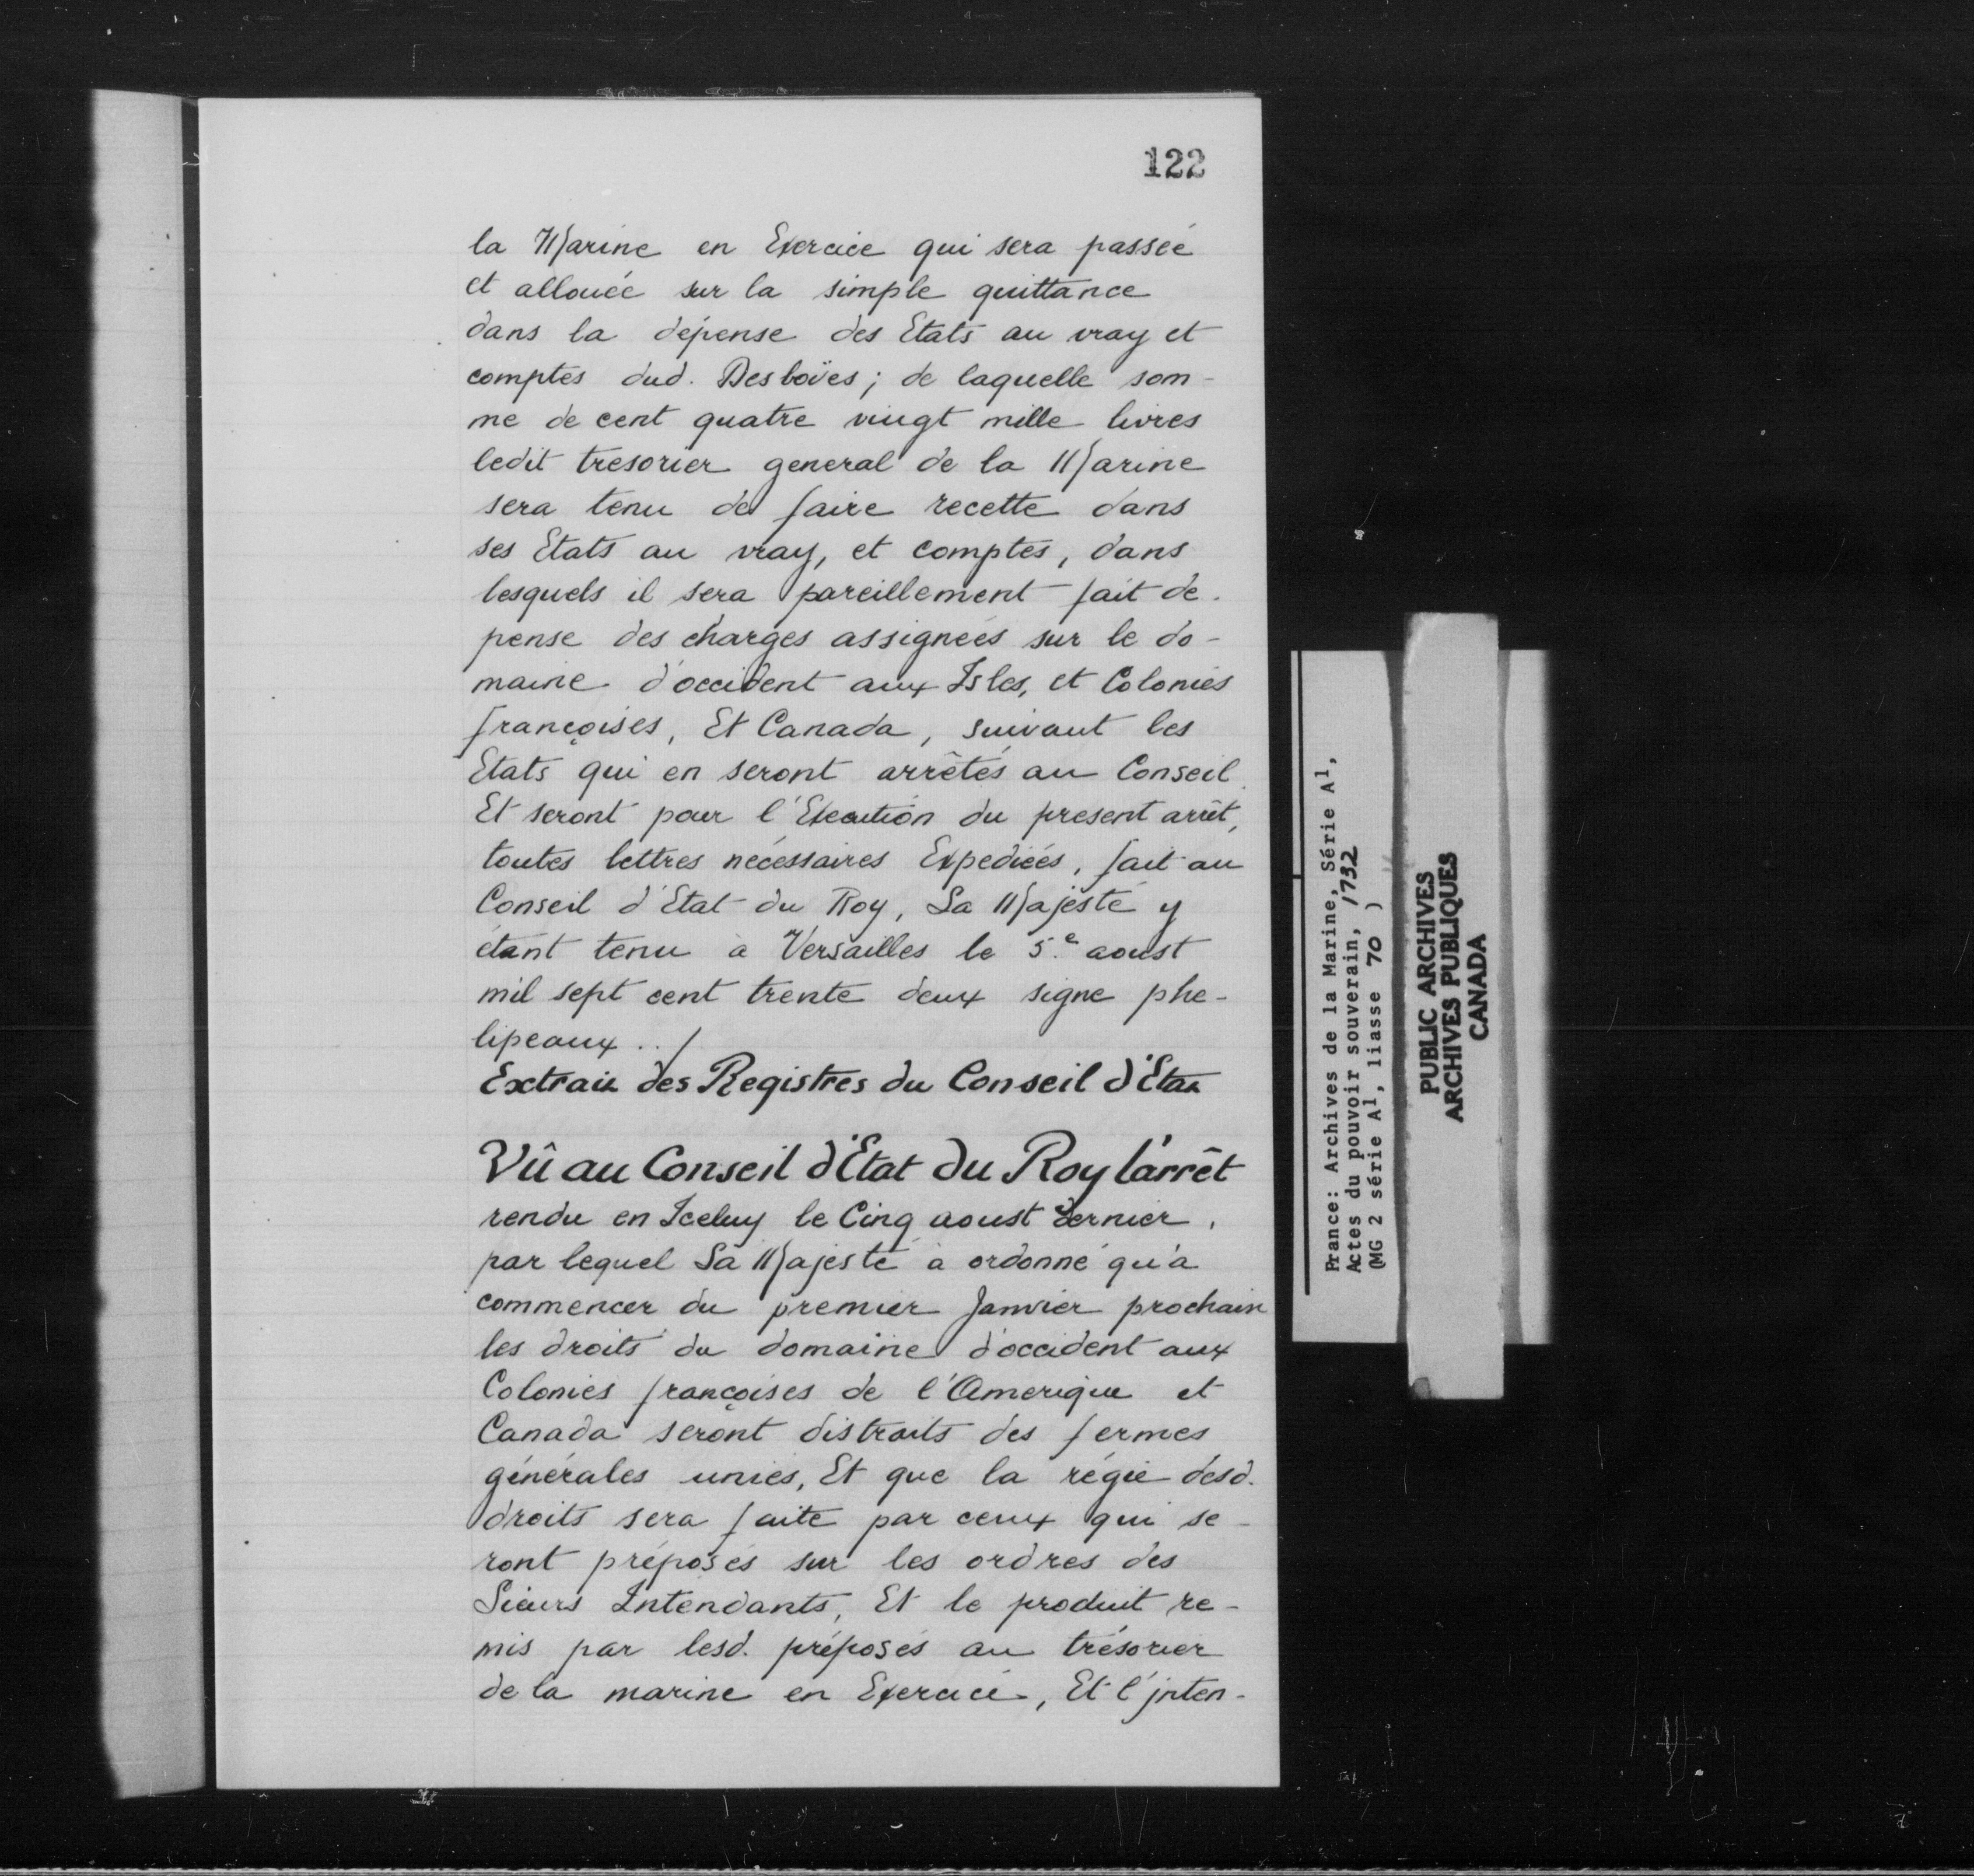 122
la Marine en Exercice qui sera passée
et allouée sur la simple quittance
dans la dépense des Etats au vray et
comptes dud. Desboües; de laquelle som-
me de cent quatre vingt mille livres
ledit tresorier general de la Marine
sera tenu de faire recette dans
ses Etats au vray, et comptes, dans
lesquels il sera pareillement fait dé-
pense des charges assignées sur le do-
maine d'occident aux Isles, et Colonies
françoises, Et Canada, suivant les
Etats qui en seront arrêtés au Conseil.
Et seront pour l'Execution du present arrêt,
toutes lettres nécessaires Expediées, fait au
Conseil d'Etat du Roy, Sa Majesté y
étant tenu à Versailles le 5.e aoust
mil sept cent trente deux signe phe-
lipeaux../
Extrait des Registres du Conseil d'Etat
Vû au Conseil d'Etat du Roy l'arrêt
rendu en Iceluy le Cinq aoust dernier,
par lequel Sa Majesté à ordonné qu'à
commencer du premier Janvier prochain
les droits du domaine d'occident aux
Colonies françoises de l'Amerique et
Canada seront distraits des fermes
générales unies, Et que la régie desd.
droits sera faite par ceux qui se-
ront préposés sur les ordres des
Sieurs Intendants, Et le produit re-
mis par lesd. préposés au trésorier
de la marine en Exercice, Et l'jnten-
France: Archives de la Marine, Série A1,
Actes du pouvoir souverain, 1732
(MG 2 série A1, liasse 70 )
PUBLIC ARCHIVES
ARCHIVES PUBLIQUES
CANADA